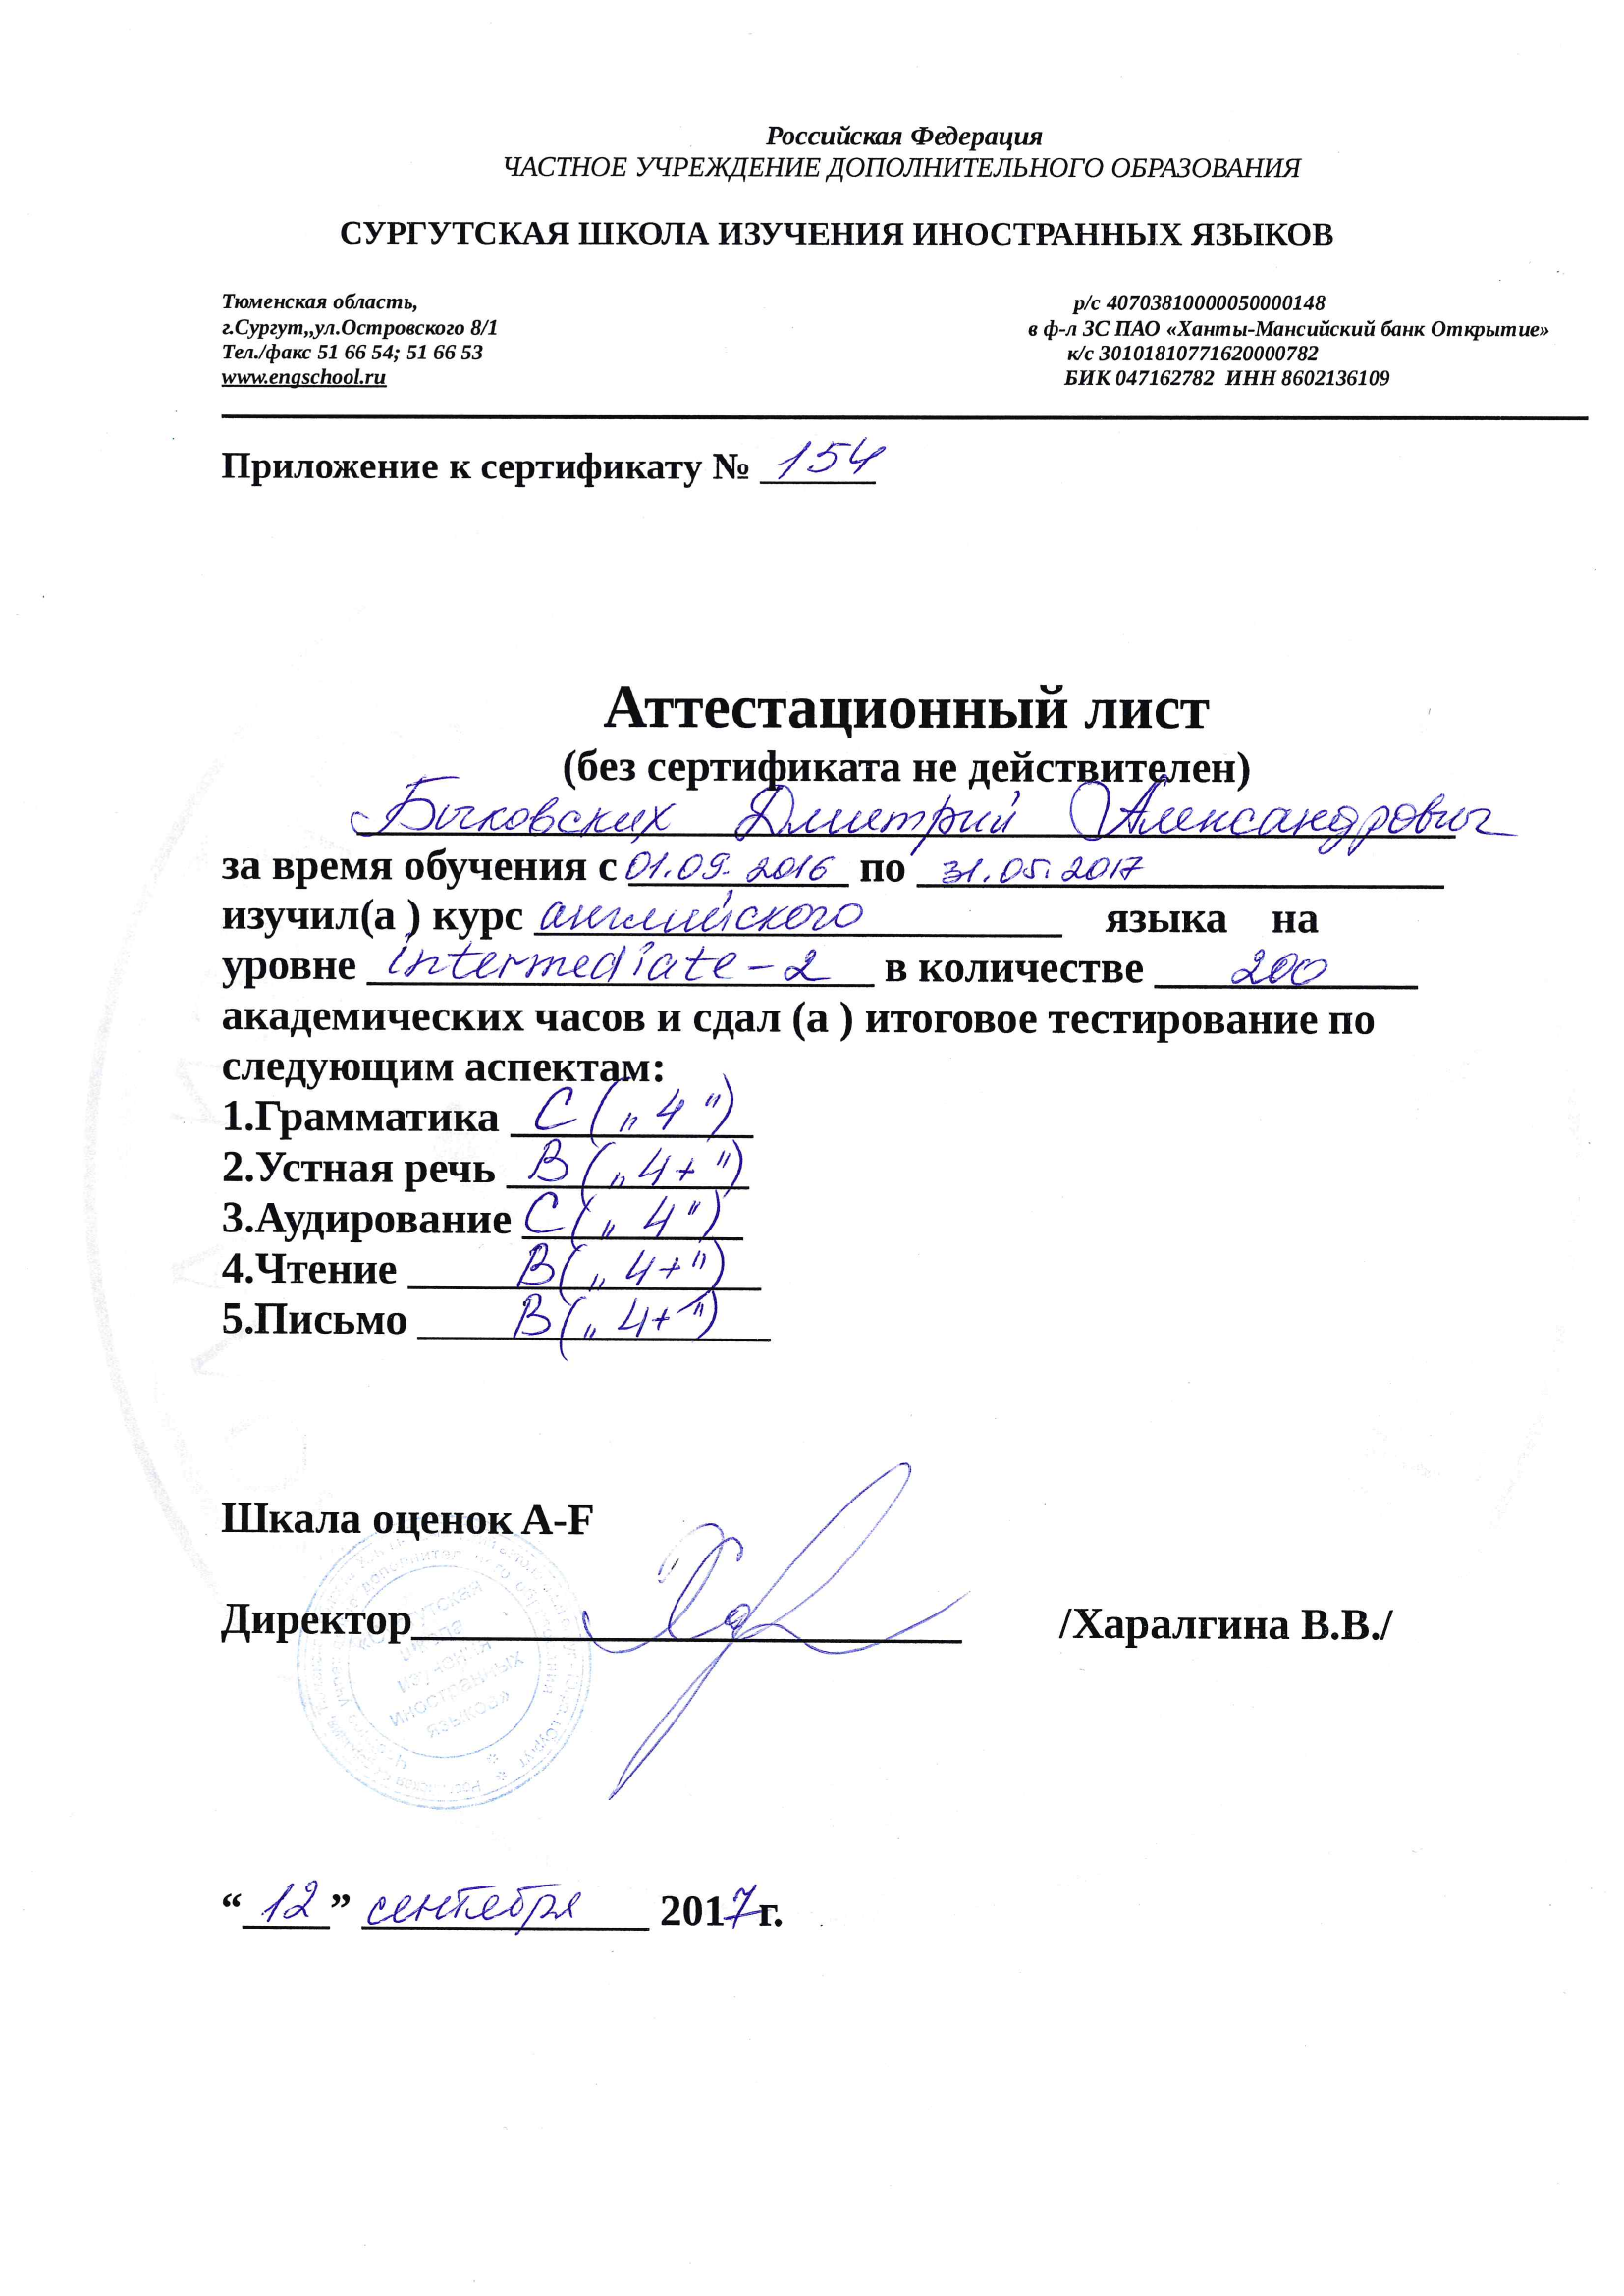 Российская Федерация
ЧАСТНОЕ УЧРЕЖДЕНИЕ ДОПОЛНИТЕЛЬНОГО ОБРАЗОВАНИЯ
СУРГУТСКАЯ ШКОЛА ИЗУЧЕНИЯ ИНОСТРАННЫХ ЯЗЫКОВ
Тюменская область,
г.Сургут,,ул.Островского 8/1
Тел./факс 51 66 54; 51 66 53
www.engschool.ru
р/с 40703810000050000148
в ф-л ЗС ПАО «Ханты-Мансийский банк Открытие»
к/с 30101810771620000782
БИК 047162782 ИНН 8602136109
Приложение к сертификату № 154
Аттестационный лист
(без сертификата не действителен)
Бычковских Дмитрий Александрович
за время обучения с 01.09.2016 по 31.05.2017
изучил(а ) курс английского языка на
уровне intermediate-2 в количестве 200
академических часов и сдал (а ) итоговое тестирование по
следующим аспектам:
1.Грамматика C („4")
2.Устная речь B („4+")
3.Аудирование C („4")
4.Чтение B („4+")
5.Письмо B („4+")
Шкала оценок A-F
Директор /Харалгина В.В./
«Сургутская
школа
изучения
иностранных
языков»
“12” сентября 2017г.